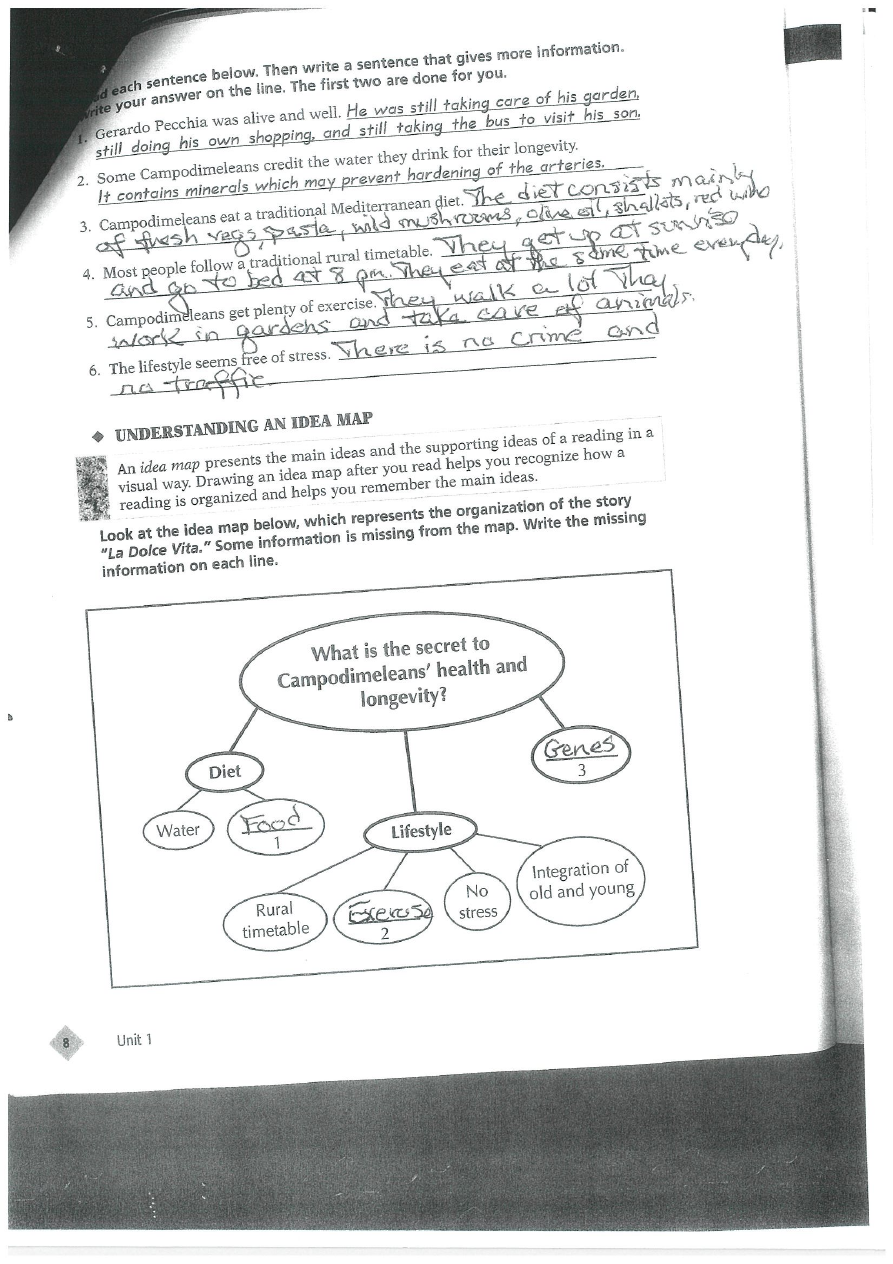 each sentence below. Then write a sentence that gives more information.
write your answer on the line. The first two are done for you.
1. Gerardo Pecchia was alive and well. He was still taking care of his garden,
still doing his own shopping, and still taking the bus to visit his son.
2. Some Campodimeleans credit the water they drink for their longevity.
It contains minerals which may prevent hardening of the arteries.
3. Campodimeleans eat a traditional Mediterranean diet. The diet consists mainly
of fresh vegs, pasta, wild mushrooms, olive oil, shallots, red wine
4. Most people follow a traditional rural timetable. They get up at sunrise
and go to bed at 8 pm. They eat at the same time everyday.
5. Campodimeleans get plenty of exercise. They walk a lot They
work in gardens and take care of animals.
6. The lifestyle seems free of stress. There is no crime and
no traffic
◆ UNDERSTANDING AN IDEA MAP
An idea map presents the main ideas and the supporting ideas of a reading in a
visual way. Drawing an idea map after you read helps you recognize how a
reading is organized and helps you remember the main ideas.
Look at the idea map below, which represents the organization of the story
"La Dolce Vita." Some information is missing from the map. Write the missing
information on each line.
What is the secret to
Campodimeleans' health and
longevity?
Genes
3
Diet
Water
Food
1
Lifestyle
Rural
timetable
Exercise
2
No
stress
Integration of
old and young
8 Unit 1